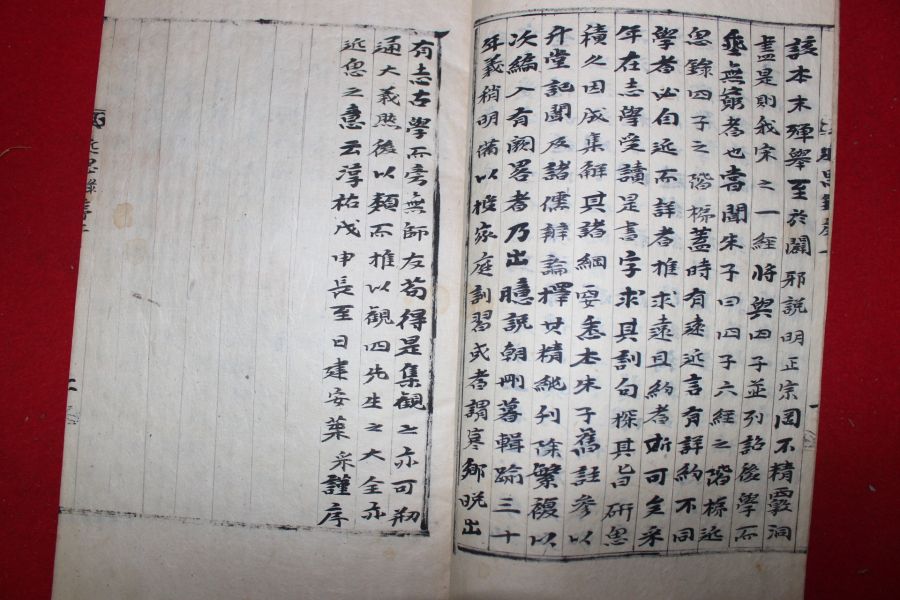 該本末殫舉至於闢邪説明正宗罔不精覈洞
盡是則我宋之一經將與四子並列詔後學而
垂無窮者也嘗聞朱子曰四子六經之階梯近
思錄四子之階梯蓋時有遠近言有詳約不同
學者必自近而詳者推求遠且約者斯可矣采
年在志學受讀是書字求其訓句探其旨研思
積久因成集解其諸綱要悉本朱子舊註參以
升堂記聞及諸儒辯論擇其精純刊除繁複以
次編入有闕畧者乃出臆説朝刪暮輯踰三十
年義稍明備以授家庭訓習或者謂寒鄉晚出
有志古學而旁無師友苟得是集觀之亦可刱
通大義然後以類而推以觀四先生之大全亦
近思之意云淳祐戊申長至日建安葉采謹序